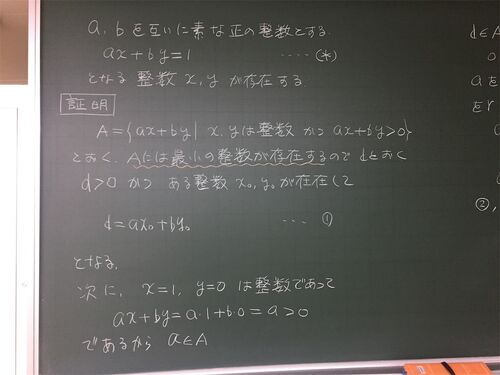 a, b を互いに素な正の整数とする.
ax+by=1 ‥‥(*)
となる 整数 x, y が存在する
証明
A={ax+by| x, yは整数 かつ ax+by>0}
とおく. Aには最小の整数が存在するので dとおく
d>0 かつ ある整数 x₀, y₀ が存在して
d=ax₀+by₀ ‥‥ ①
となる.
次に, x=1, y=0 は整数であって
ax+by=a·1+b·0=a>0
であるから a∈A
d∈A
aを
をr
②,